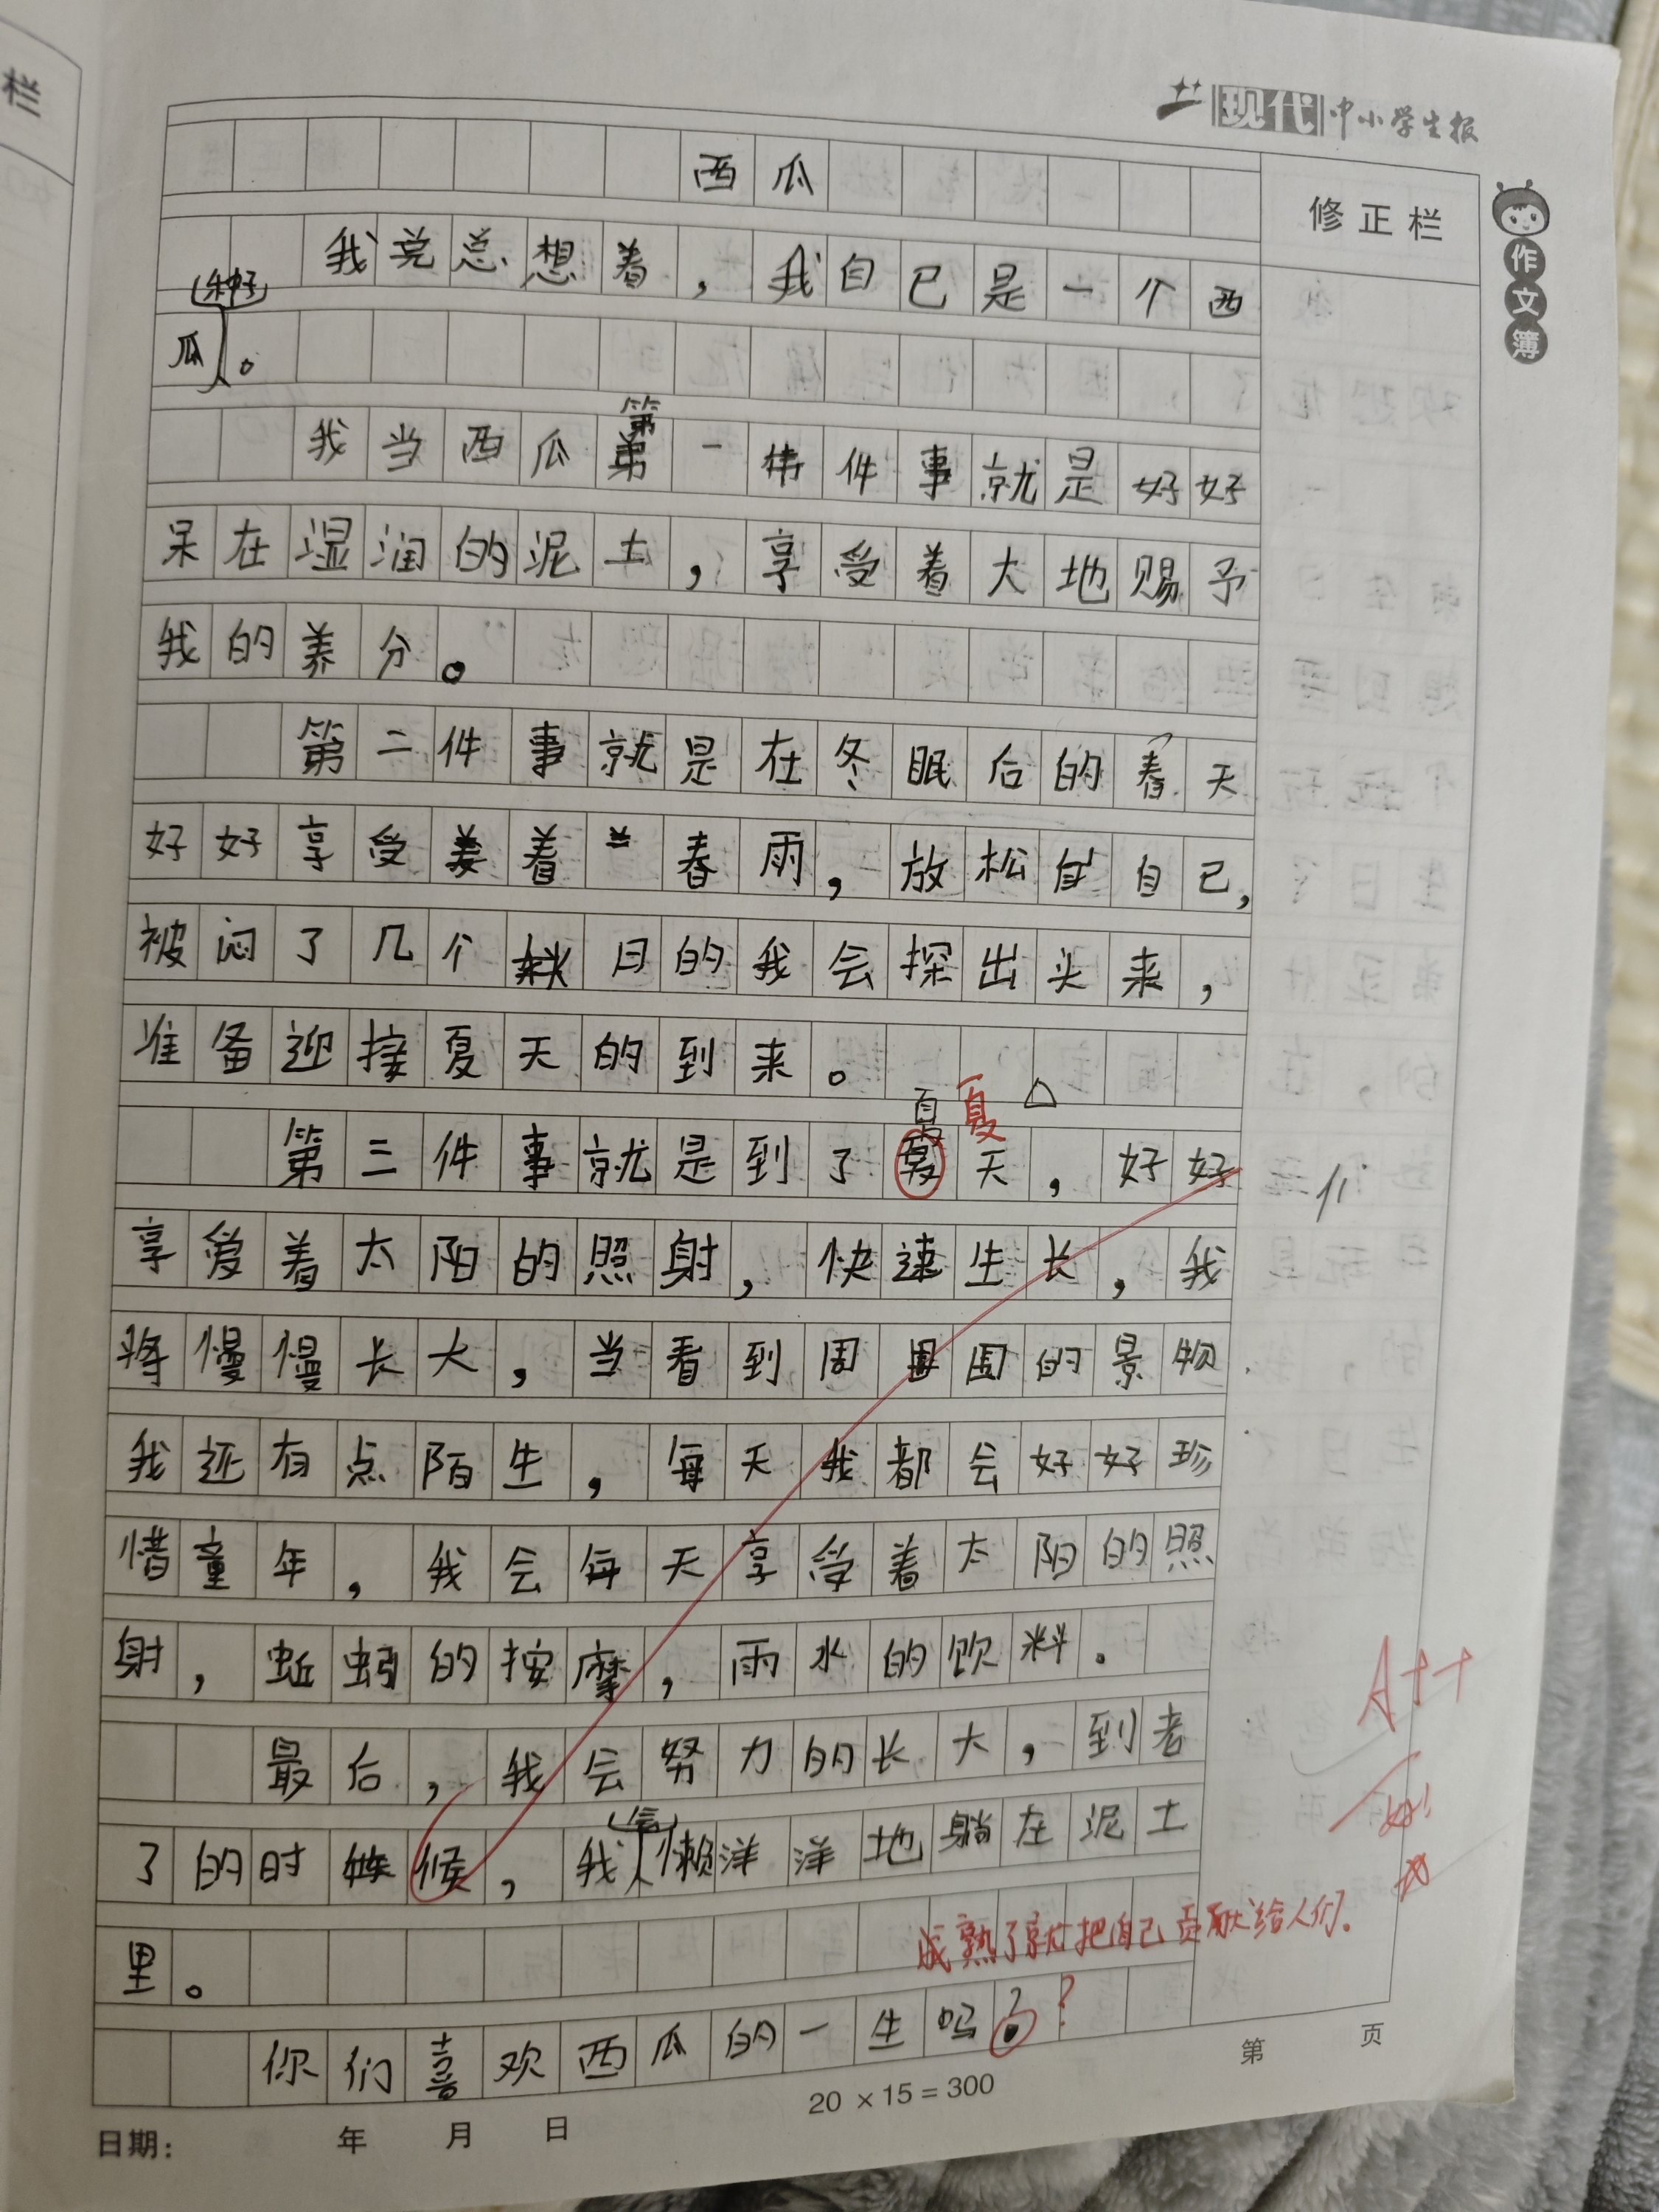 栏
现代中小学生报
西瓜
修正栏
作文簿
我总想着，我自己是一个西
(种子)
瓜。
第
我当西瓜第一件事就是好好
呆在湿润的泥土，享受着大地赐予
我的养分。
第二件事就是在冬眠后的春天
好好享受着春雨，放松自己，
被闷了几个秋日的我会探出头来，
准备迎接夏天的到来。
夏
第三件事就是到了夏天，好好
享受着太阳的照射，快速生长，我
将慢慢长大，当看到周围的景物
我还有点陌生，每天我都会好好珍
惜童年，我会每天享受着太阳的照
射，蚯蚓的按摩，雨水的饮料。
A++
最后，我会努力的长大，到老
(会)
妙!
了的时候，我懒洋洋地躺在泥土
成熟了就把自己贡献给人们。
里。
你们喜欢西瓜的一生吗?
第 页
20×15=300
日期： 年 月 日